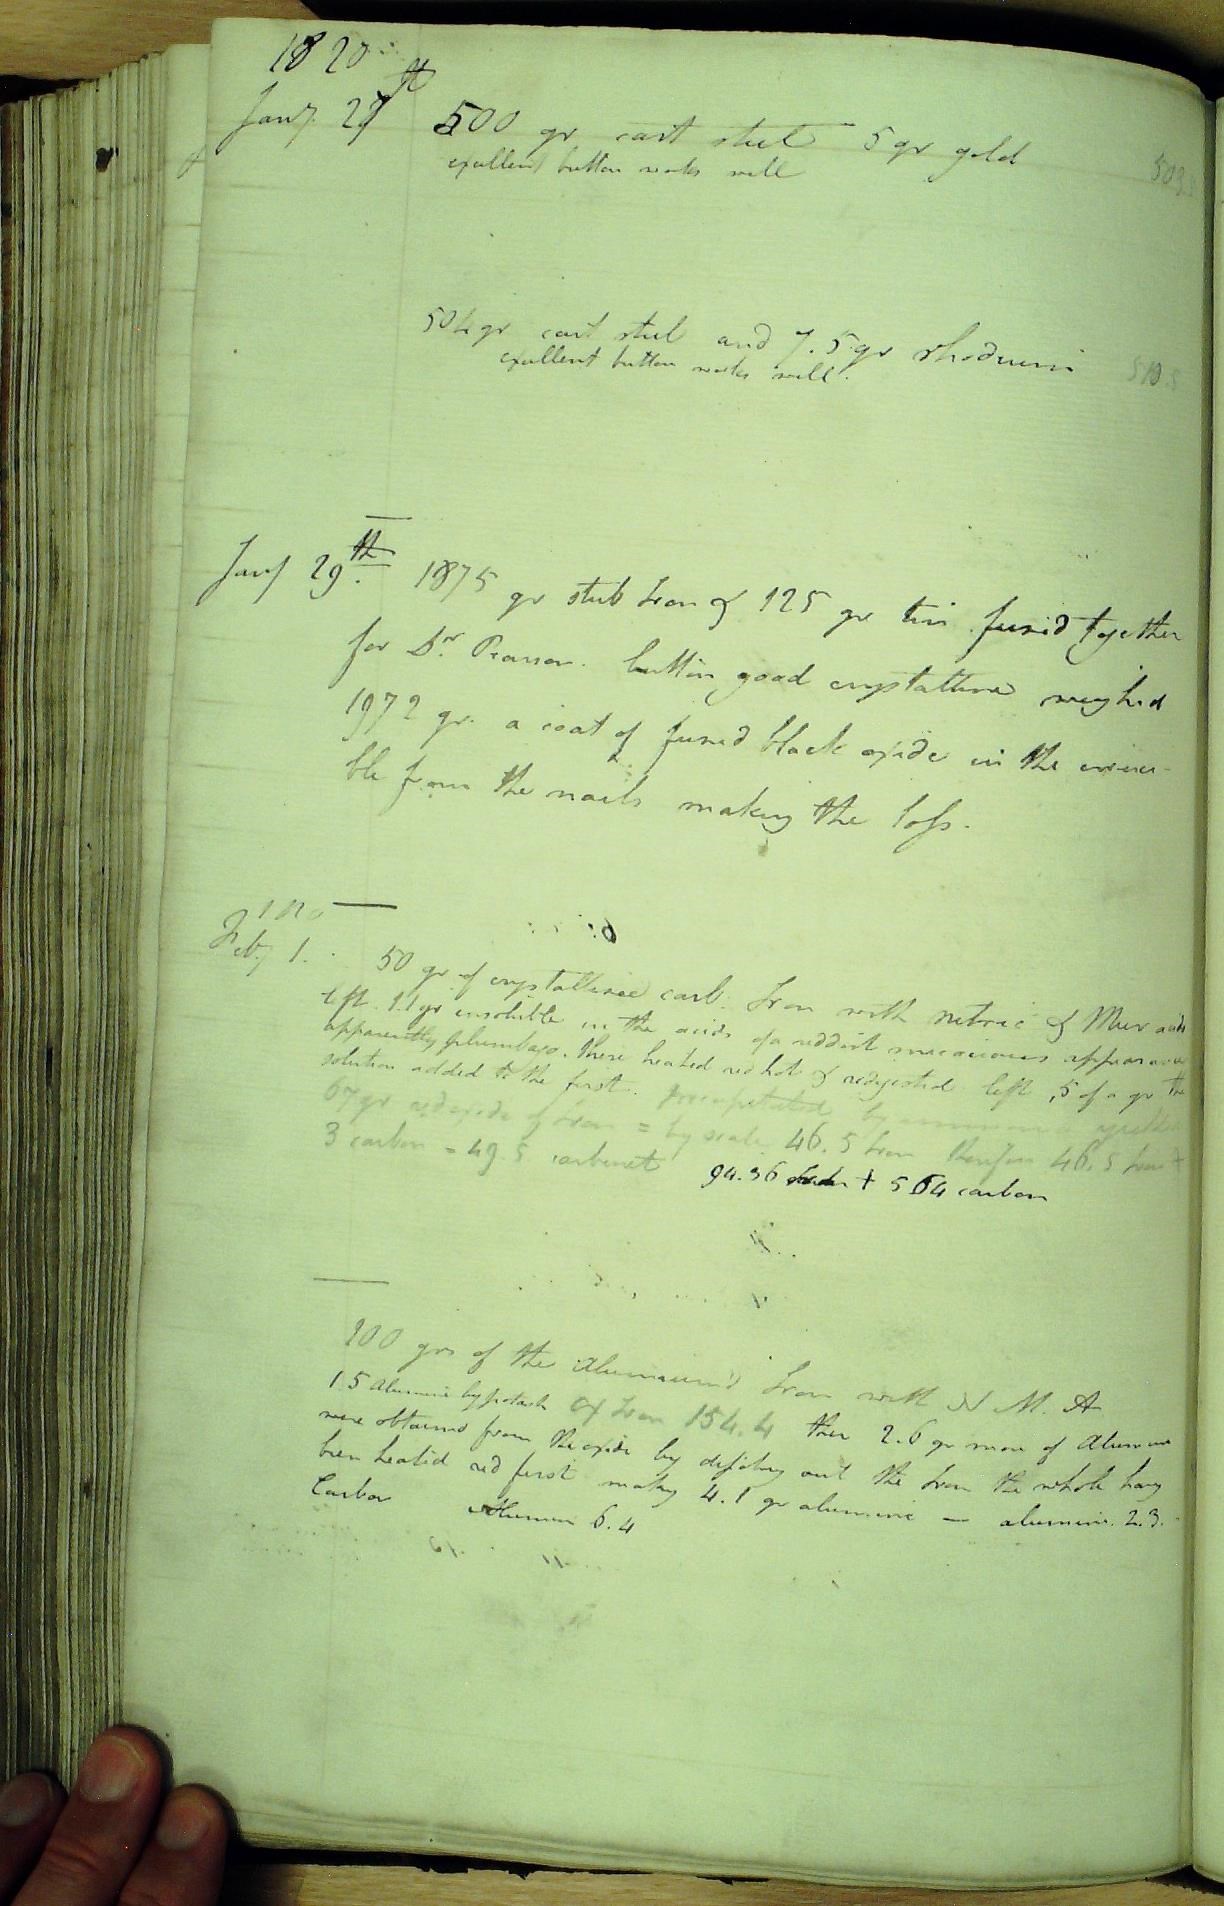 1820
Jany. 27th 500 gr cast steel 5 gr gold
excellent button works well 503.
504 gr cast steel and 7.5 gr rhodium
excellent button works well. 510.5
Jany 29th. 1875 gr stub Iron & 125 gr tin fused together
for Dr. Pearson. button good crystalline weighed
1972 gr. a coat of fused black oxide in the cruci-
ble from the nails making the loss.
1820
Feby 1. 50 gr of crystallised carb. Iron with nitric & Mur acids
left 1.1 gr insoluble in the acids of a reddish micaceous appearance
apparently plumbago. these heated red hot & redigested left ,5 of a gr the
solution added to the first. Precipitated by ammonia yielded
67 gr red oxide of Iron = by scale 46.5 Iron therefore 46.5 Iron +
3 carbon = 49.5 carburet 94.36 + 5.64 carbon
200 grs of the Alumina Iron with N M. A
1.5 Alumine by potash Ox Iron 154.4 then 2.6 gr more of Alumine
were obtained from the oxide by out the Iron the whole havg
been heated red first makg 4.1 gr alumine — alumine. 2.3.
Carbon 6.4